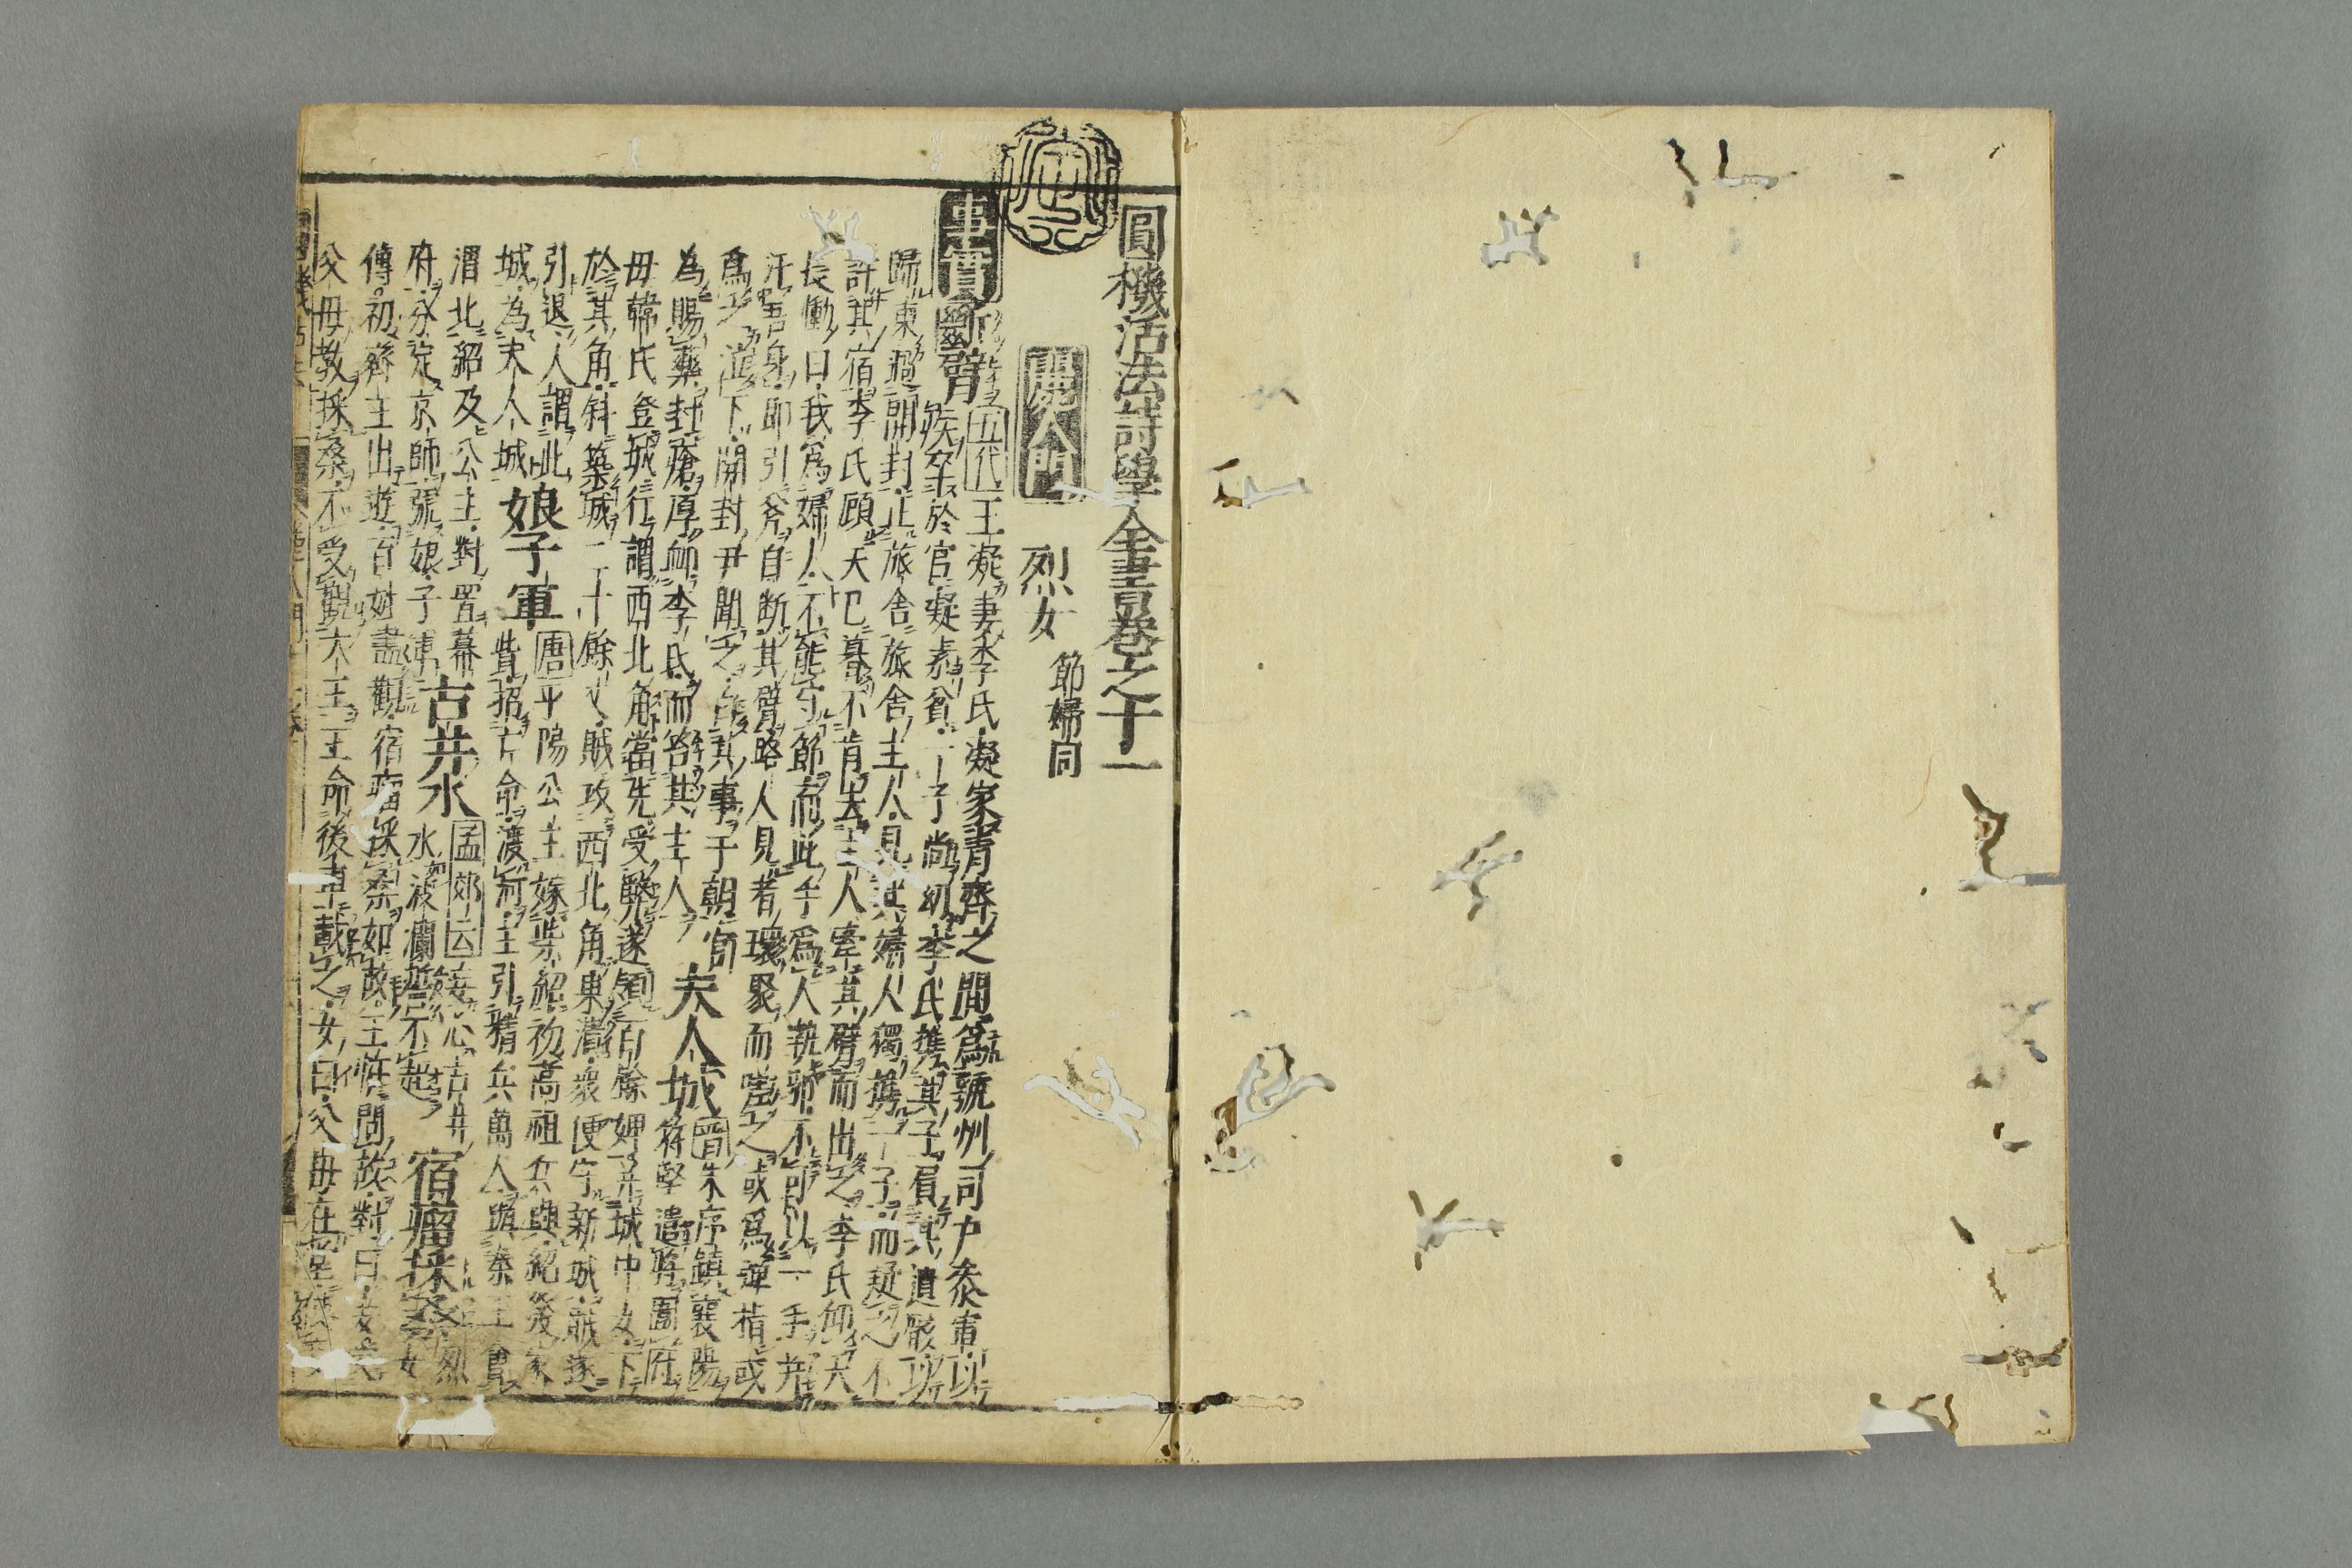 圓機活法詩學全書卷之十一
麗人門
烈女 節婦同
事實 斷臂 五代王凝妻李氏凝家青齊之間爲虢州司户參軍以
疾卒於官凝素貧一子尚幼李氏携其子負其遺骸以
歸東過開封止旅舍旅舍主人見其婦人獨携一子而疑之不
許其宿李氏顧天已暮不肯去主人牽其臂而出之李氏仰天
長慟曰我爲婦人不能守節而此手爲人執邪不可以一手并
汙吾身即引斧自斷其臂路人見者環聚而嗟之或爲彈指或
爲之泣下開封尹聞之白其事于朝官
為賜藥封瘡厚卹李氏而笞其主人 夫人城 晉朱序鎮襄陽
苻堅遣將圍府
母韓氏登城行謂西北角當先受弊遂領百餘婢并城中女下
於其角斜築城二十餘丈賊攻西北角東潰衆便守新城賊遂
引退人謂此
城為夫人城 娘子軍 唐平陽公主嫁柴紹初高祖兵興紹發家
貲招亡命渡河主引精兵萬人與秦王會
渭北紹及公主對置幕
府分定京師號娘子軍 古井水 孟郊云妾心古井
水波瀾誓不起 宿瘤採桑 烈女
傳初齊王出遊百姓盡觀宿瘤採桑如故王怪問故對曰妾受
父母教採桑不受觀大王王命後車載之女曰父母在堂